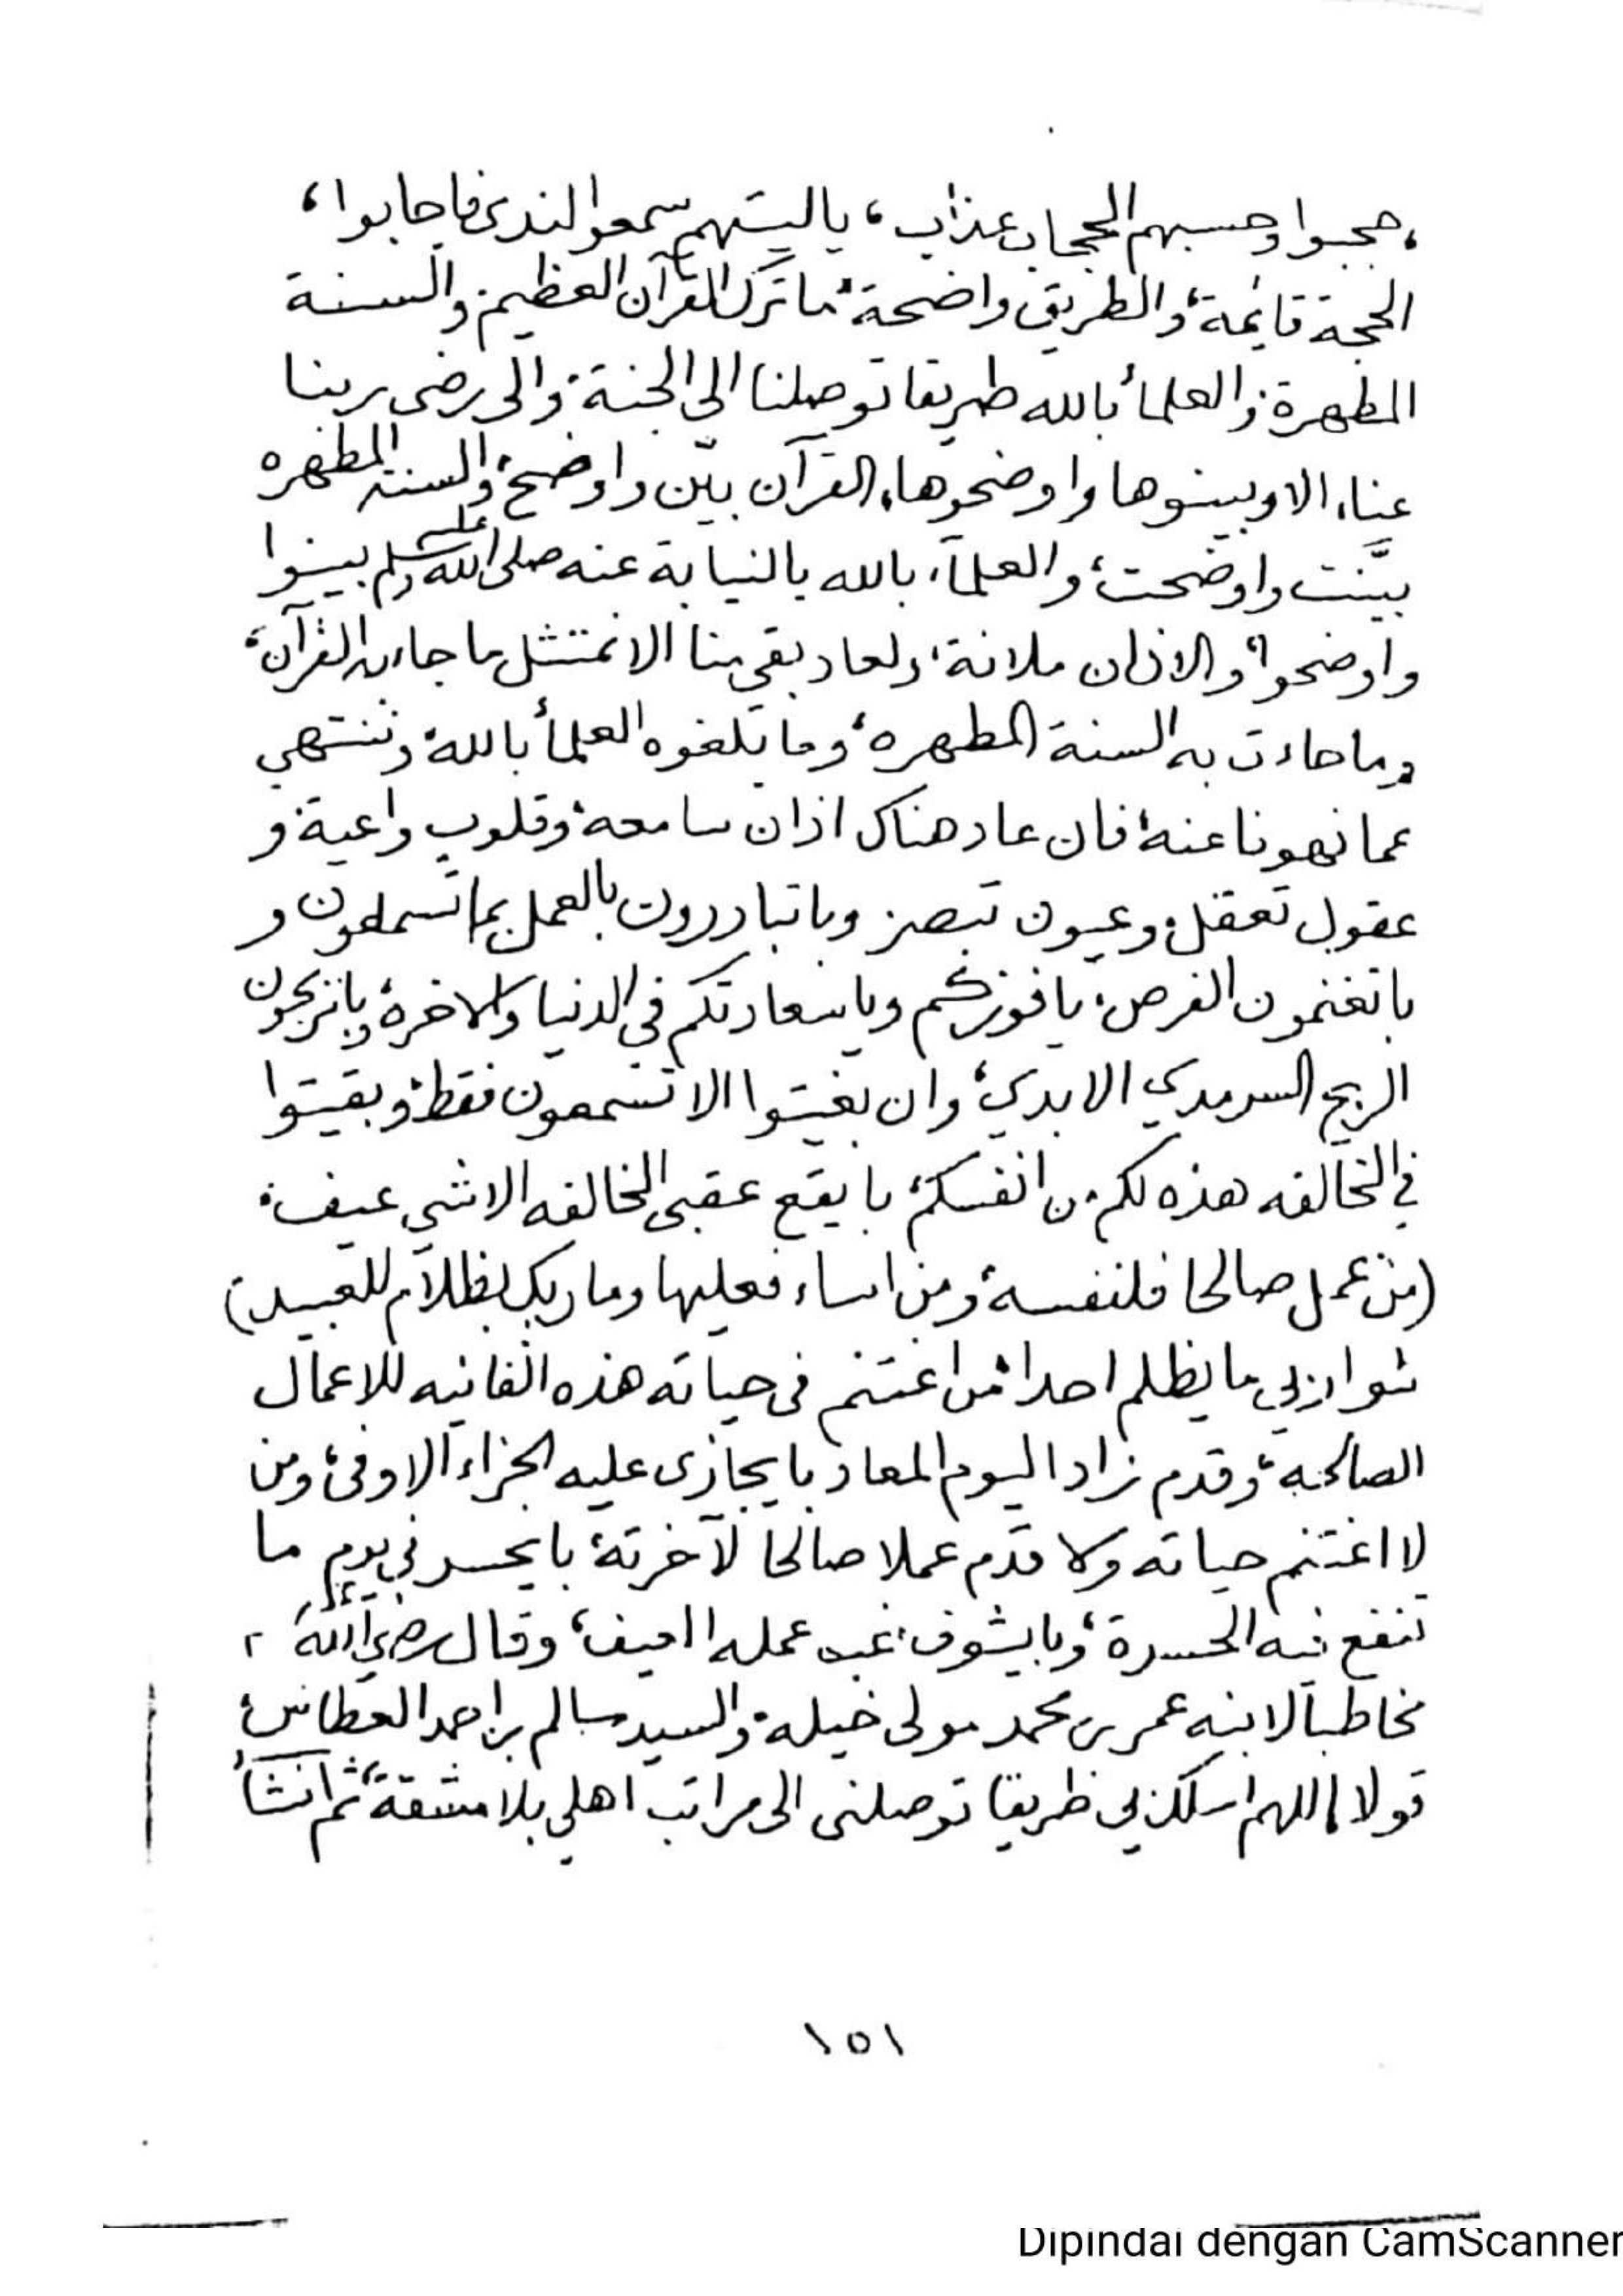 ، حجبوا وحسبهم الحجاب عذاب، ياليتهم سمعوا الندى فاجابوا،
الحجة قائمة، والطريق واضحة، ما ترك القرآن العظيم، والسنة
المطهرة، والعلمأ بالله طريقا توصلنا الى الجنة، والى رضى ربنا
عنا، الا وبينوها واوضحوها، القرآن بيّن واوضح، والسنة المطهره
بيَّنت واوضحت، والعلمآء بالله بالنيابة عنه صلى الله عليه وسلم بينوا
واوضحوا، والاذان ملانة، ولعاد بقي منا الا نمتثل ما جاء به القرآن،
وما جاءت به السنة المطهره، وما بلغوه العلمأ بالله، وننتهي
عما نهونا عنه، فان عاد هناك اذان سامعه، وقلوب واعية، و
عقول تعقل، وعيون تبصر، وباتبادرون بالعمل بما تسمعون و
باتغنمون الفرص، يا فوزكم وياسعادتكم في الدنيا والاخرة، وباتربحون
الربح السرمدي الابدي، وان بغيتوا الا تسمعون فقط، وبقيتوا
في المخالفه هذه لكم من انفسكم، با يقع عقبى المخالفه الا شي عيف،
(من عمل صالحا فلنفسه، ومن اساء فعليها وما ربك بظلام للعبيد)
شوا ربي ما يظلم احدا، من اغتنم في حياته هذه الفانيه للاعمال
الصالحه، وقدم زادا ليوم المعاد بايجازى عليه الجزاء الاوفى، ومن
لا اغتنم حياته ولا قدم عملا صالحا لآخرته، بايحسر في يوم ما
تنفع فيه الحسرة، وبايشوف غب عمله العيف، وقال رضي الله
مخاطباً لابنه عمر بن محمد مولى خيله، والسيد سالم بن احمد العطاس،
قولا اللهم اسلك بي طريقا توصلني الى مراتب اهلي بلا مشقة، ثم انشأ
١٥١
Dipindai dengan CamScanner